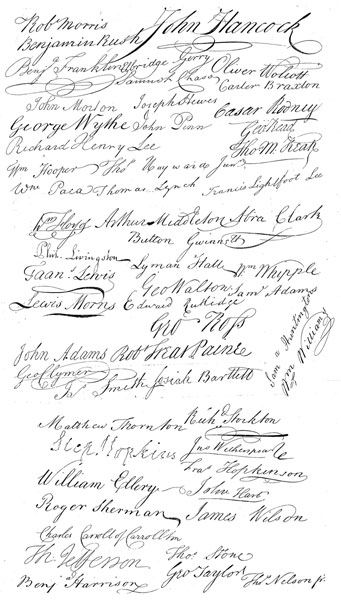 Robt Morris John Hancock
Benjamin Rush
Benj. Franklin Elbridge Gerry Oliver Wolcott
Samuel Chase Carter Braxton
John Morton Joseph Hewes Caesar Rodney
George Wythe John Penn Geo Read
Richard Henry Lee Tho M. Kean
Wm Hooper Thos Hayward Junr.
Wm Paca Thomas Lynch Francis Lightfoot Lee
Wm Floyd Arthur Middleton Abra Clark
Button Gwinnett
Phil. Livingston Lyman Hall Wm Whipple
Fran. Lewis Geo Walton Saml Adams
Lewis Morris Edward Rutledge
Geo Ross
Sam el Huntington
Wm Williams
John Adams Robt Treat Paine
Geo Clymer
Jas Smith Josiah Bartlett
Matthew Thornton Richd Stockton
Step. Hopkins Jno Witherspoon
Fras Hopkinson
William Ellery John Hart
Roger Sherman James Wilson
Charles Carroll of Carrollton
Th Jefferson Thos Stone
Geo Taylor
Benj Harrison Thos Nelson jr.